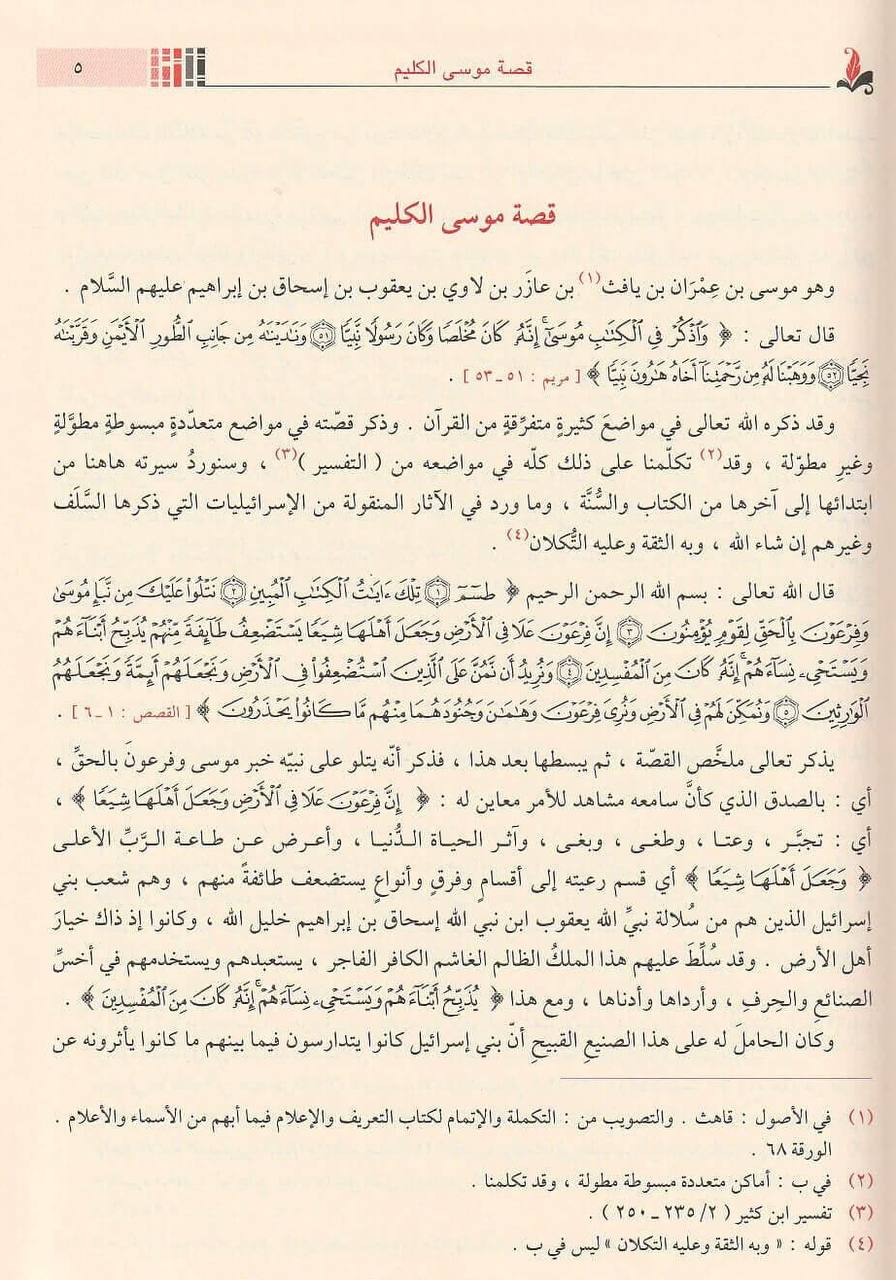 قصة موسى الكليم ٥
قصة موسى الكليم
وهو موسى بن عِمْرَان بن يافث(١) بن عازَر بن لاوي بن يعقوب بن إسحاق بن إبراهيم عليهم السَّلام .
قال تعالى : ﴿ وَٱذْكُرْ فِي ٱلْكِتَٰبِ مُوسَىٰٓ إِنَّهُۥ كَانَ مُخْلَصًا وَكَانَ رَسُولًا نَّبِيًّا ۝٥١ وَنَٰدَيْنَٰهُ مِن جَانِبِ ٱلطُّورِ ٱلْأَيْمَنِ وَقَرَّبْنَٰهُ
نَجِيًّا ۝٥٢ وَوَهَبْنَا لَهُۥ مِن رَّحْمَتِنَآ أَخَاهُ هَٰرُونَ نَبِيًّا ﴾ [ مريم : ٥١ـ٥٣ ] .
وقد ذكره الله تعالى في مواضعَ كثيرةٍ متفرِّقةٍ من القرآن . وذكر قصّته في مواضع متعدّدةٍ مبسوطةٍ مطوَّلةٍ
وغيرِ مطوّلة ، وقد(٢) تكلّمنا على ذلك كلّه في مواضعه من ( التفسير )(٣) ، وسنوردُ سيرته هاهنا من
ابتدائها إلى آخرها من الكتاب والسُّنَّة ، وما ورد في الآثار المنقولة من الإسرائيليات التي ذكرها السَّلَف
وغيرهم إن شاء الله ، وبه الثقة وعليه التُّكلان(٤) .
قال الله تعالى : بسم الله الرحمن الرحيم ﴿ طسٓمٓ ۝١ تِلْكَ ءَايَٰتُ ٱلْكِتَٰبِ ٱلْمُبِينِ ۝٢ نَتْلُوا۟ عَلَيْكَ مِن نَّبَإِ مُوسَىٰ
وَفِرْعَوْنَ بِٱلْحَقِّ لِقَوْمٍ يُؤْمِنُونَ ۝٣ إِنَّ فِرْعَوْنَ عَلَا فِي ٱلْأَرْضِ وَجَعَلَ أَهْلَهَا شِيَعًا يَسْتَضْعِفُ طَآئِفَةً مِّنْهُمْ يُذَبِّحُ أَبْنَآءَهُمْ
وَيَسْتَحْىِۦ نِسَآءَهُمْ إِنَّهُۥ كَانَ مِنَ ٱلْمُفْسِدِينَ ۝٤ وَنُرِيدُ أَن نَّمُنَّ عَلَى ٱلَّذِينَ ٱسْتُضْعِفُوا۟ فِي ٱلْأَرْضِ وَنَجْعَلَهُمْ أَئِمَّةً وَنَجْعَلَهُمُ
ٱلْوَٰرِثِينَ ۝٥ وَنُمَكِّنَ لَهُمْ فِي ٱلْأَرْضِ وَنُرِيَ فِرْعَوْنَ وَهَٰمَٰنَ وَجُنُودَهُمَا مِنْهُم مَّا كَانُوا۟ يَحْذَرُونَ ﴾ [ القصص : ١ـ٦ ] .
يذكر تعالى ملخَّص القصّة ، ثم يبسطها بعد هذا ، فذكر أنّه يتلو على نبيّه خبر موسى وفرعونَ بالحقِّ ،
أي : بالصدق الذي كأنَّ سامعه مشاهد للأمر معاين له : ﴿ إِنَّ فِرْعَوْنَ عَلَا فِي ٱلْأَرْضِ وَجَعَلَ أَهْلَهَا شِيَعًا ﴾ ،
أي : تجبَّر ، وعتا ، وطغى ، وبغى ، وآثر الحياة الدُّنيا ، وأعرض عن طاعة الرَّبِّ الأعلى
﴿ وَجَعَلَ أَهْلَهَا شِيَعًا ﴾ أي قسم رعيته إلى أقسامٍ وفرقٍ وأنواعٍ يستضعف طائفةً منهم ، وهم شعب بني
إسرائيل الذين هم من سُلالة نبيِّ الله يعقوب ابن نبي الله إسحاق بن إبراهيم خليل الله ، وكانوا إذ ذاك خيارَ
أهل الأرض . وقد سُلِّطَ عليهم هذا الملكُ الظالم الغاشم الكافر الفاجر ، يستعبدهم ويستخدمهم في أخسِّ
الصنائع والحِرفِ ، وأرداها وأدناها ، ومع هذا ﴿ يُذَبِّحُ أَبْنَآءَهُمْ وَيَسْتَحْىِۦ نِسَآءَهُمْ إِنَّهُۥ كَانَ مِنَ ٱلْمُفْسِدِينَ ﴾ .
وكان الحاملَ له على هذا الصنيعِ القبيحِ أنّ بني إسرائيل كانوا يتدارسون فيما بينهم ما كانوا يأثرونه عن
(١) في الأصول : قاهث . والتصويب من : التكملة والإتمام لكتاب التعريف والإعلام فيما أبهم من الأسماء والأعلام .
الورقة ٦٨ .
(٢) في ب : أماكن متعددة مبسوطة مطولة ، وقد تكلمنا .
(٣) تفسير ابن كثير ( ٢/ ٢٣٥ـ ٢٥٠ ) .
(٤) قوله : « وبه الثقة وعليه التكلان » ليس في ب .